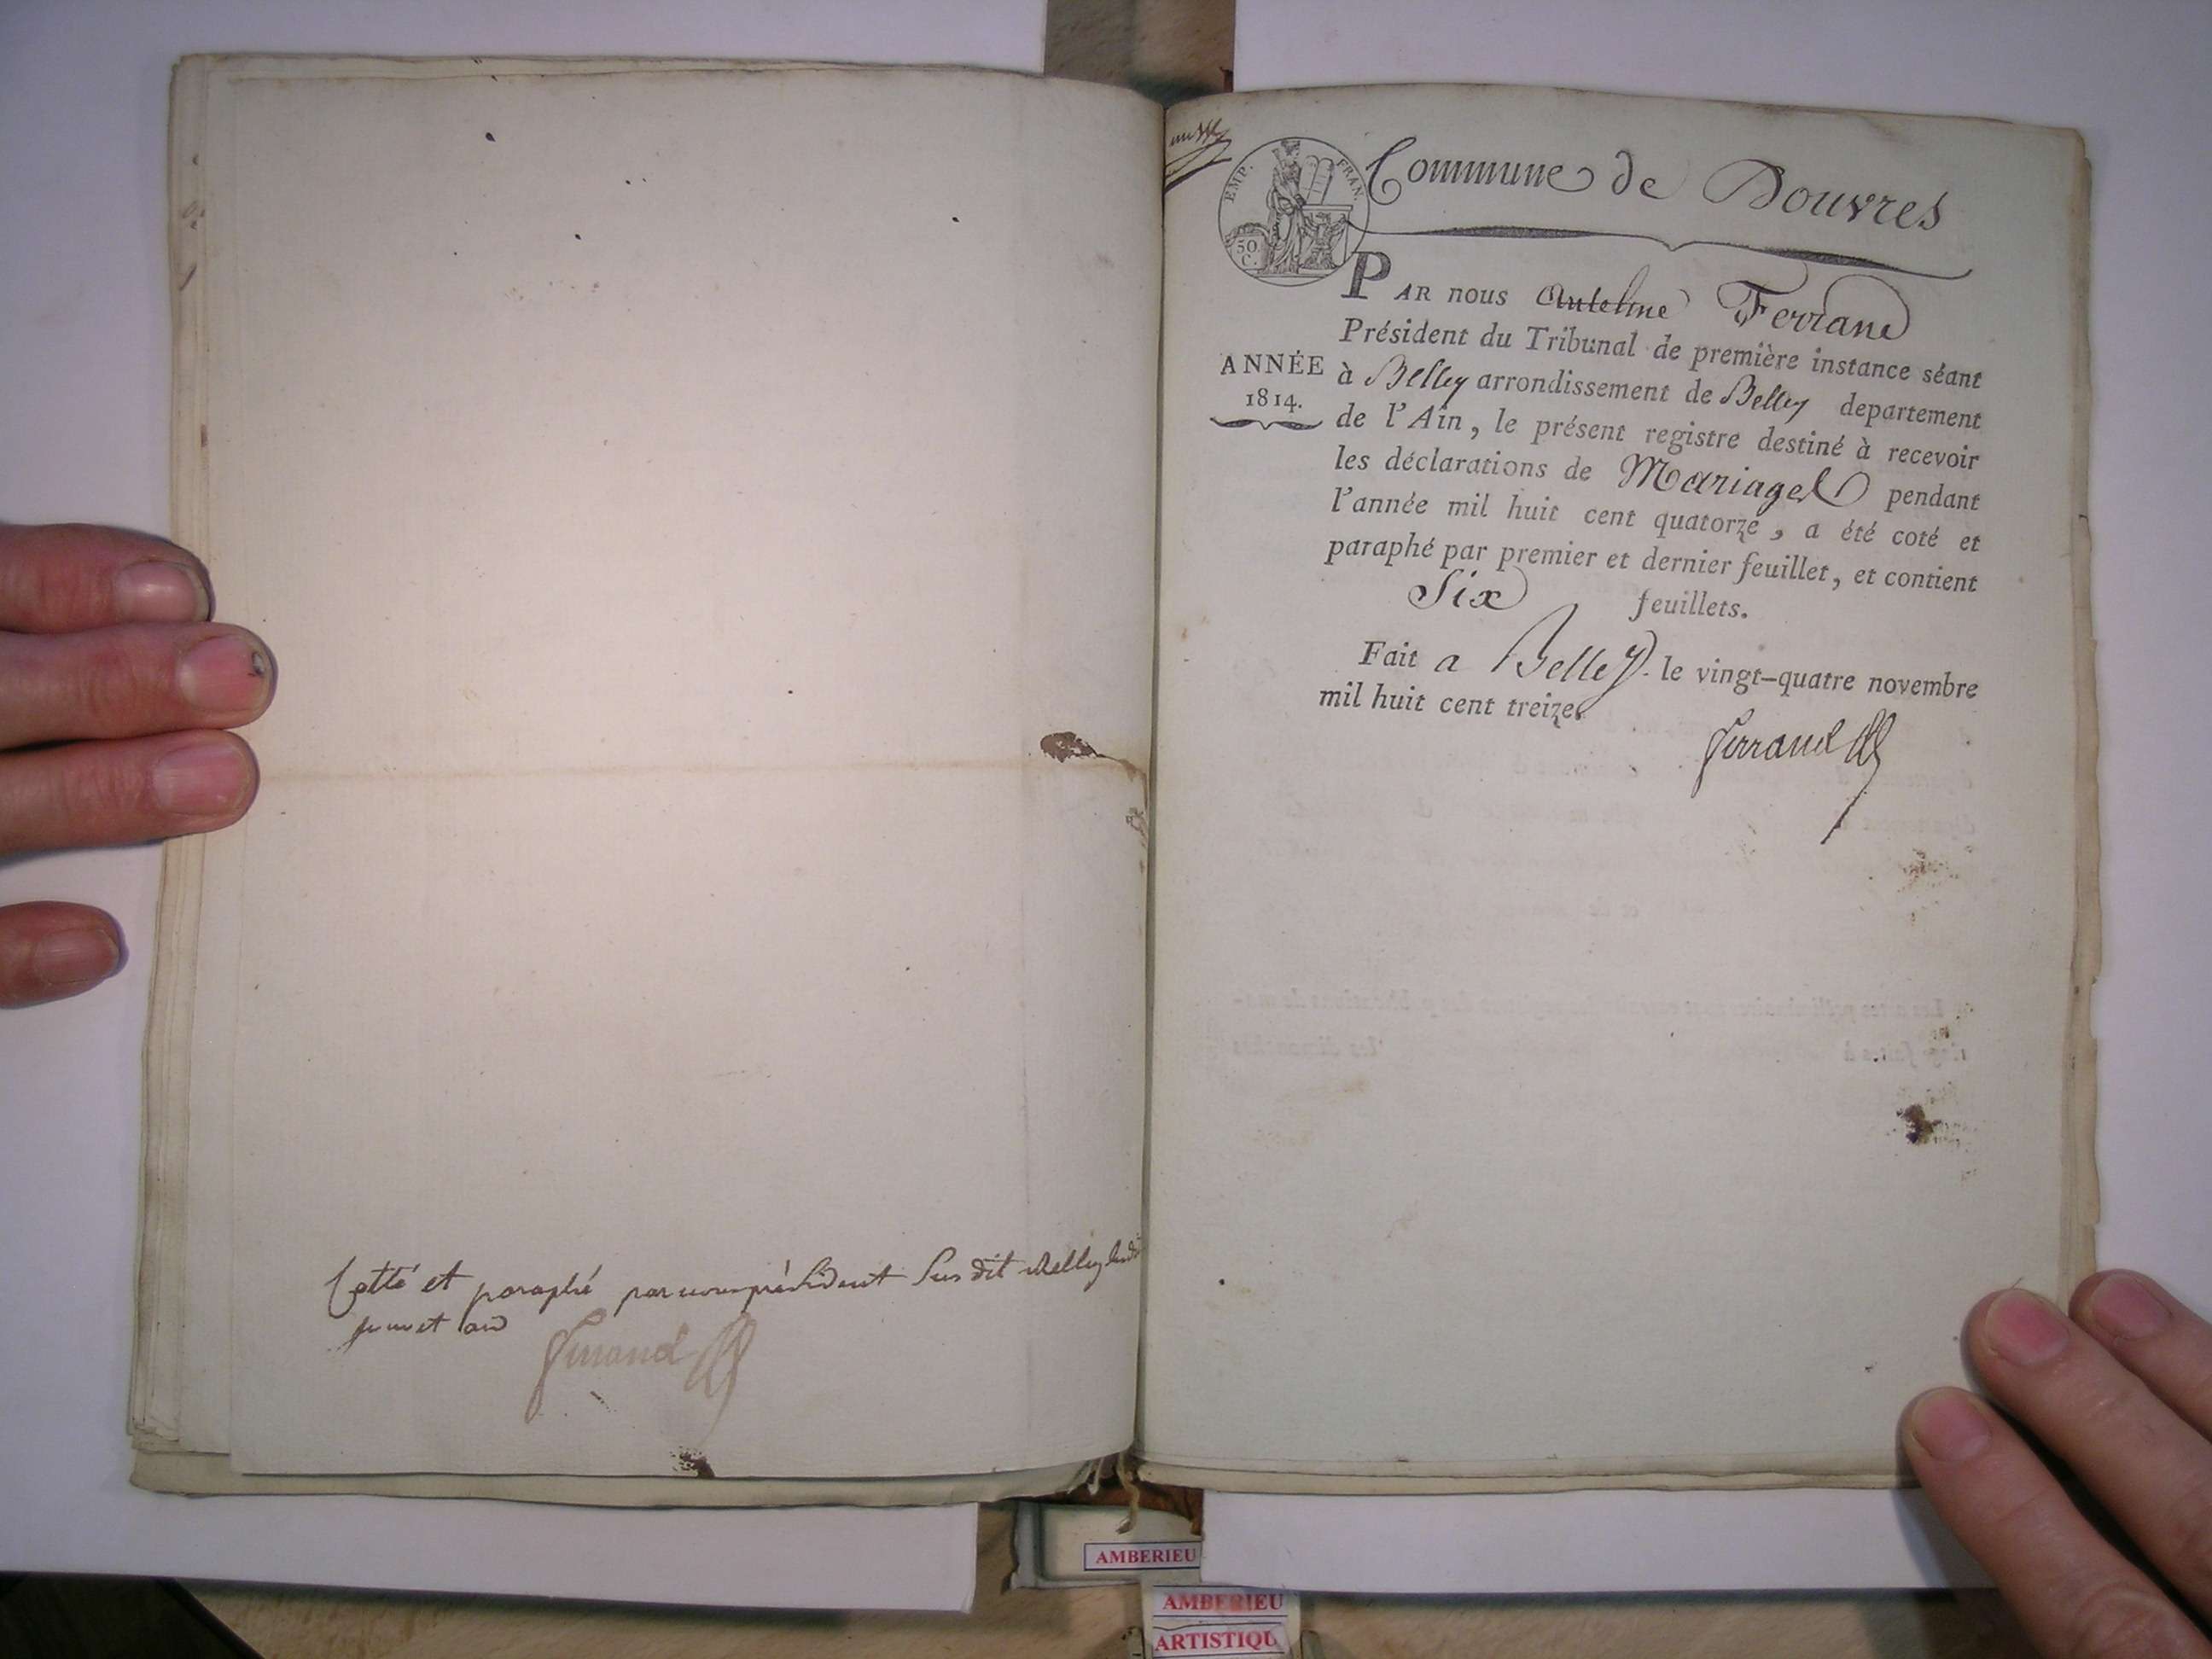 Cotté et paraphé par nous président Sus dit à Belley lesdits
jour et an
Ferrand
EMP. FRAN.
50 C.
Commune de Douvres
PAR nous Antelme Ferrand
Président du Tribunal de première instance séant
ANNÉE
1814.
à Belley arrondissement de Belley departement
de l'Ain, le présent registre destiné à recevoir
les déclarations de Mariages pendant
l'année mil huit cent quatorze, a été coté et
paraphé par premier et dernier feuillet, et contient
Six feuillets.
Fait a Belley. le vingt-quatre novembre
mil huit cent treize.
Ferrand
AMBERIEU
AMBERIEU
ARTISTIQU